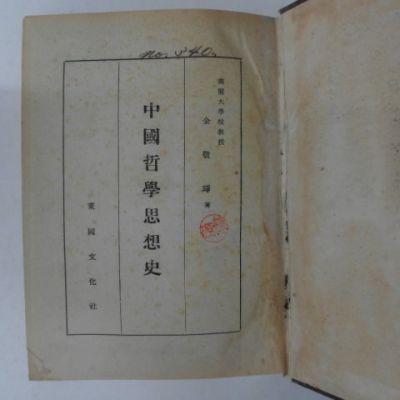 no. 340.
高麗大學校教授
金敬琢 著
中國哲學思想史
東國文化社